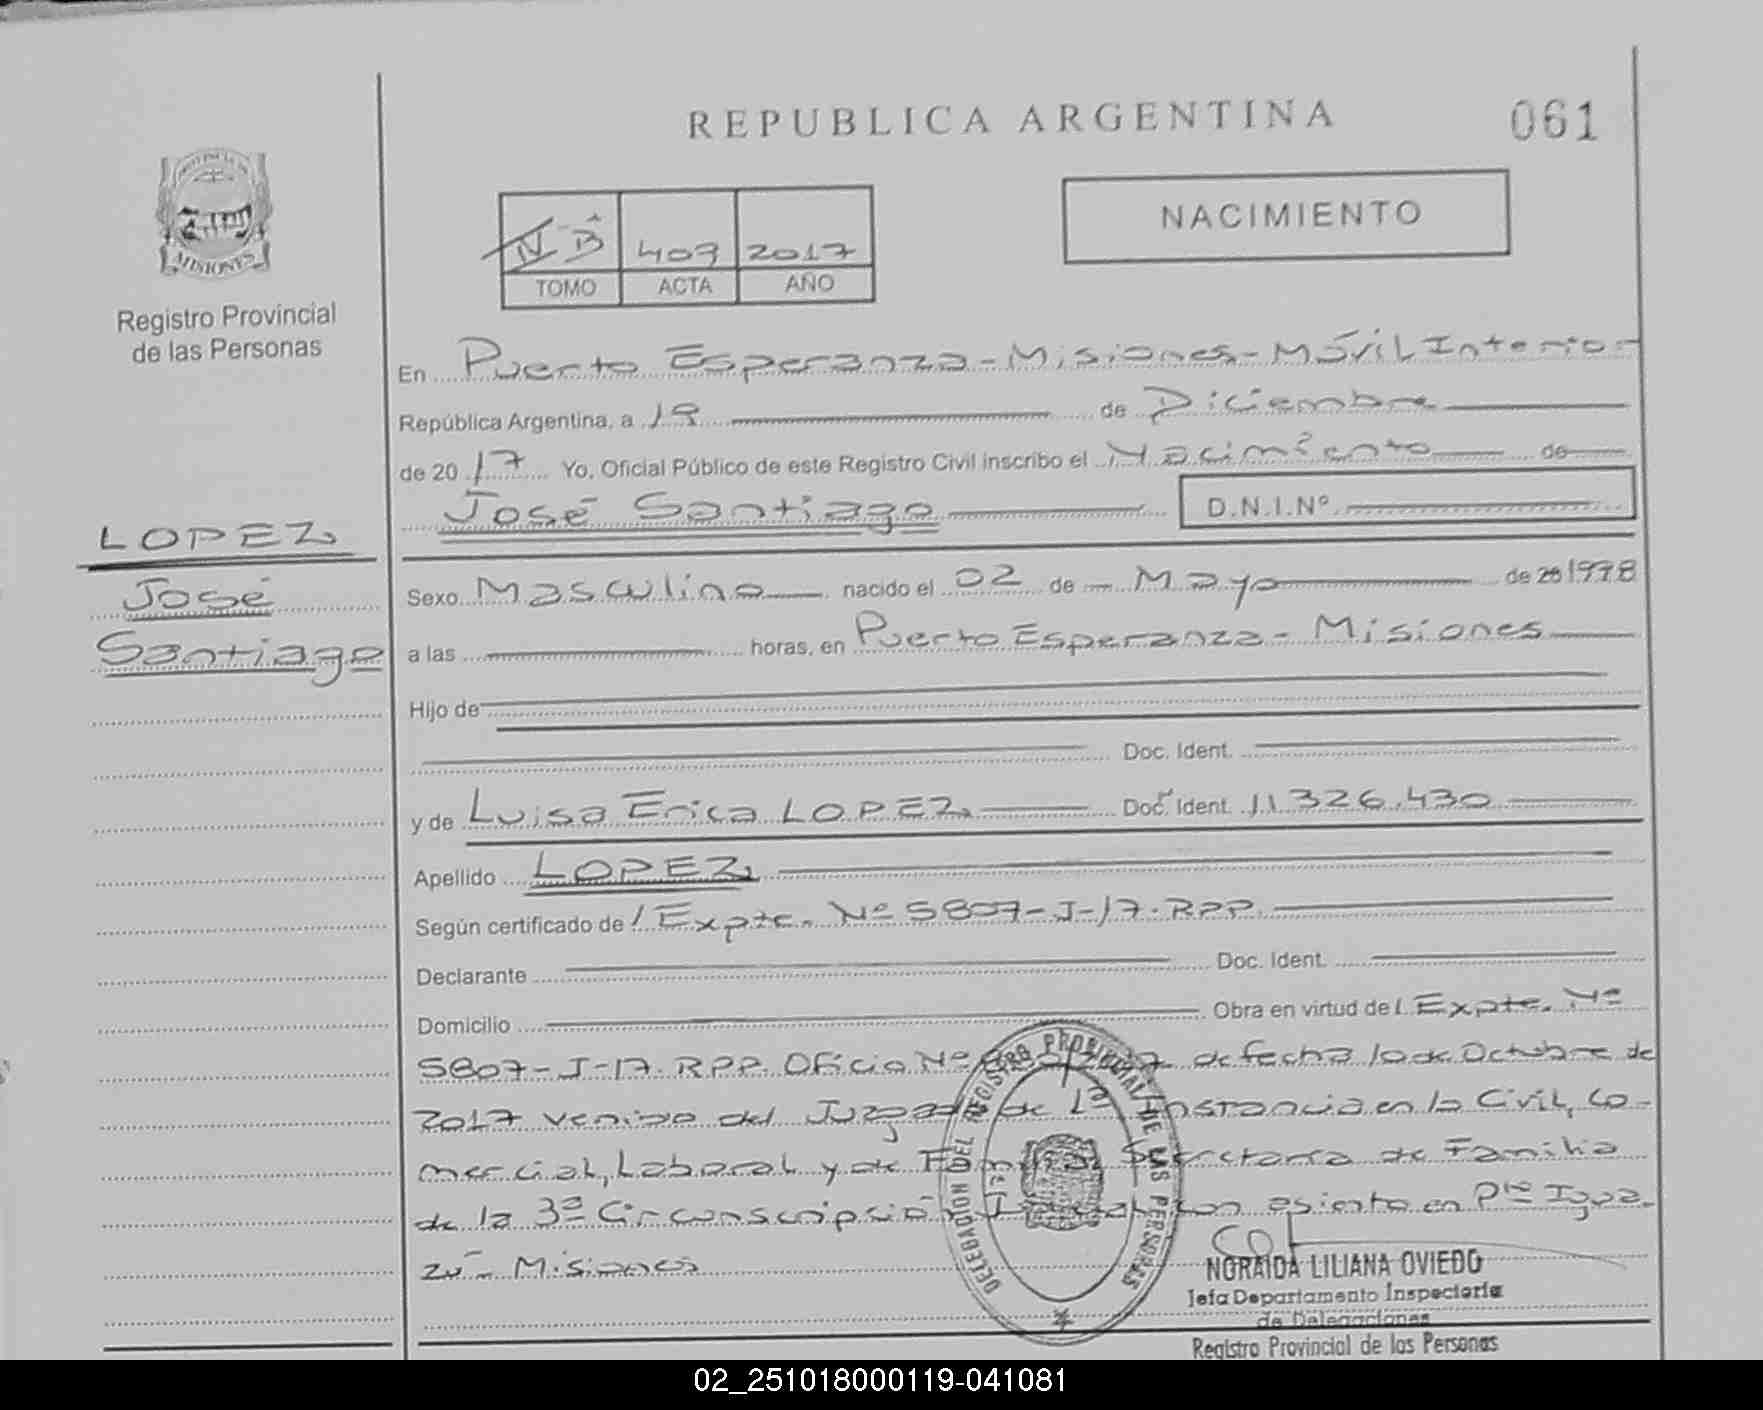 REPUBLICA ARGENTINA
061
PROVINCIA DE
MISIONES
Registro Provincial
de las Personas
NACIMIENTO
IV B 407 2017
TOMO ACTA AÑO
En Puerto Esperanza - Misiones - Móvil Interior
República Argentina, a 19 de Diciembre
de 2017 Yo, Oficial Público de este Registro Civil inscribo el Nacimiento de
José Santiago D.N.I.Nº
LOPEZ
José
Santiago
Sexo Masculino nacido el 02 de Mayo de 20 1998
a las horas, en Puerto Esperanza - Misiones
Hijo de
Doc. Ident.
y de Luisa Erica LOPEZ Doc. Ident. 11.326.430
Apellido LOPEZ
Según certificado de / Expte. Nº 5807-J-17. RPP.
Declarante Doc. Ident.
Domicilio Obra en virtud de / Expte. Nº
5807-J-17. RPP. Oficio Nº de fecha 10 de Octubre de
2017 venido del Juzgado de 1ª Instancia en lo Civil, Co-
mercial, Laboral y de Familia Secretaría de Familia
de la 3ª Circunscripción Judicial con asiento en Pto Igua-
zú - Misiones
DELEGACION DEL REGISTRO PROVINCIAL DE LAS PERSONAS
NORAIDA LILIANA OVIEDO
Jefa Departamento Inspectoría
de Delegaciones
Registro Provincial de las Personas
02_251018000119-041081